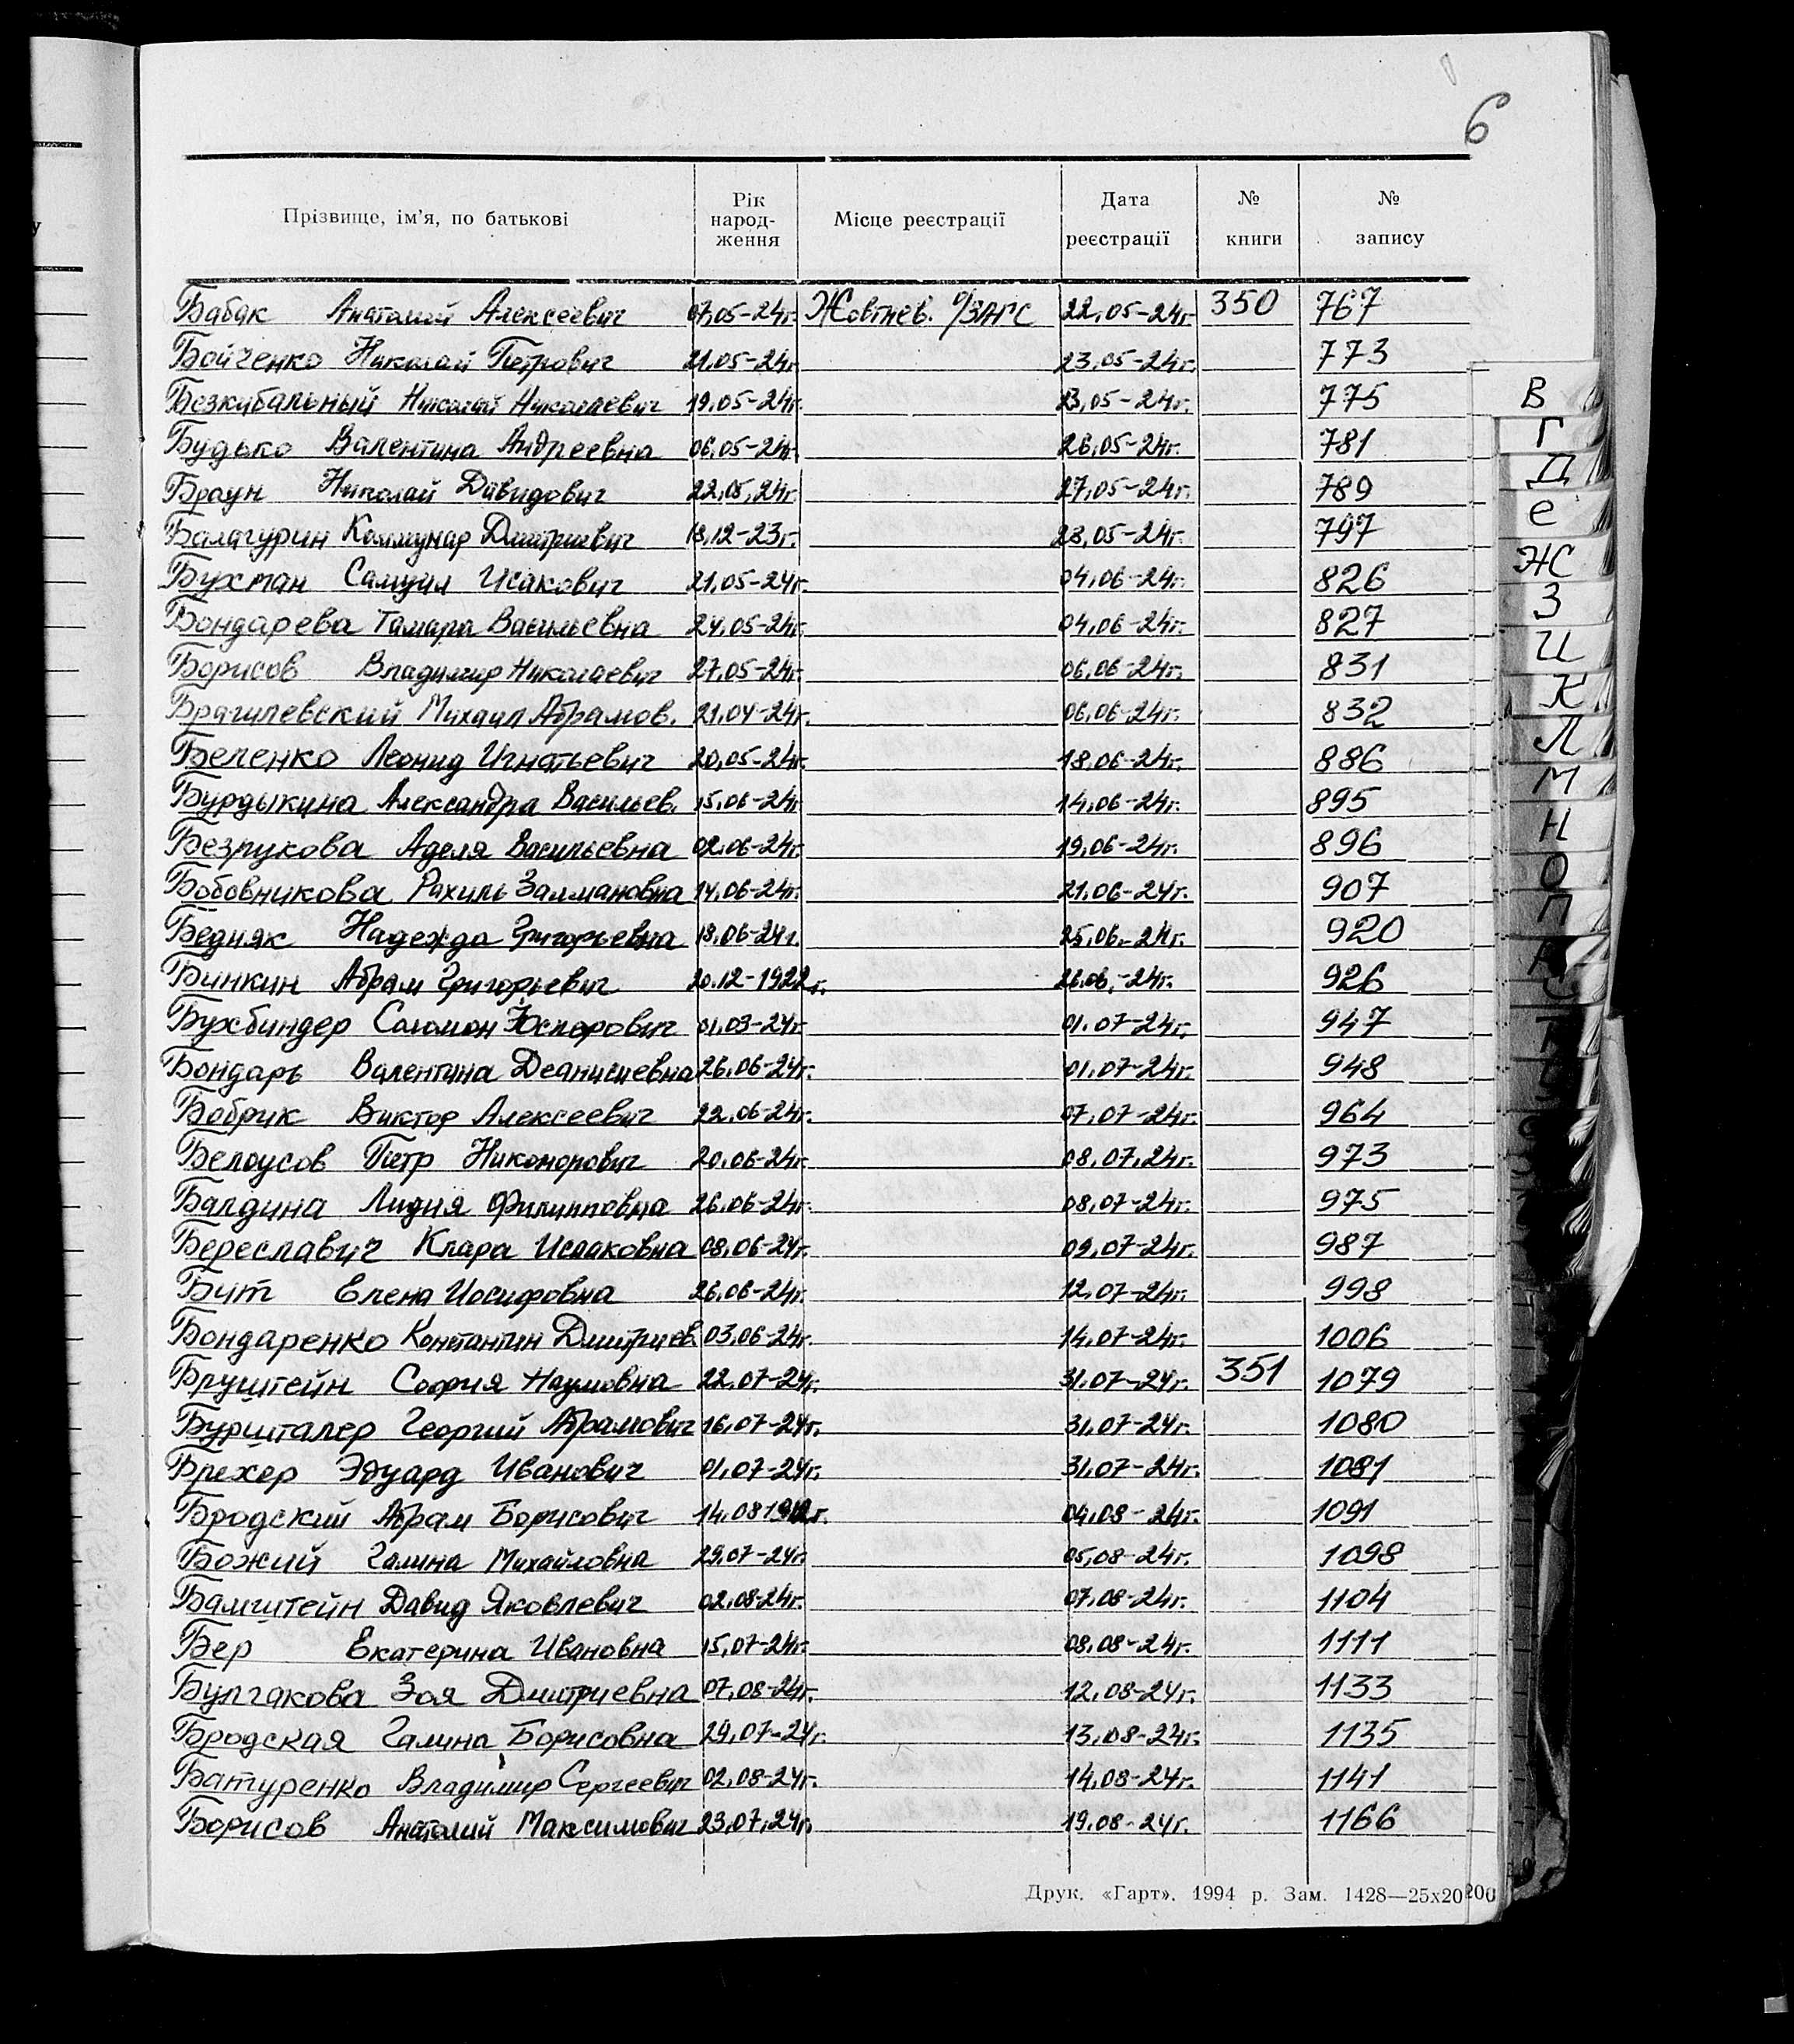 6
Прізвище, ім'я, по батькові Рік народ- ження Місце реєстрації Дата реєстрації № книги № запису
Бабак Анатолий Алексеевич 07.05-24г. Жовтнев. в/ЗАГС 22.05-24г. 350 767
Бойченко Николай Петрович 21.05-24г. 23.05-24г. 773
Безкибальный Николай Николаевич 19.05-24г. 23.05-24г. 775
Будько Валентина Андреевна 06.05-24г. 26.05-24г. 781
Браун Николай Давидович 22.05.24г. 27.05-24г. 789
Балагурин Коммунар Дмитриевич 18.12-23г. 28.05-24г. 797
Бухман Самуил Исакович 21.05-24г. 04.06-24г. 826
Бондарева Тамара Васильевна 24.05-24г. 04.06-24г. 827
Борисов Владимир Николаевич 27.05-24г. 06.06-24г. 831
Брагилевский Михаил Абрамов. 21.04-24г. 06.06-24г. 832
Беленко Леонид Игнатьевич 20.05-24г. 18.06-24г. 886
Бурдыкина Александра Васильев. 15.06-24г. 14.06-24г. 895
Безрукова Аделя Васильевна 02.06-24г. 19.06-24г. 896
Бобовникова Рахиль Залмановна 14.06-24г. 21.06-24г. 907
Бедняк Надежда Григорьевна 18.06-24г. 25.06.-24г. 920
Бинкин Абрам Григорьевич 20.12-1922г. 26.06.-24г. 926
Бухбиндер Соломон 01.03-24г. 01.07-24г. 947
Бондарь Валентина 26.06-24г. 01.07-24г. 948
Бобрик Виктор Алексеевич 22.06-24г. 07.07-24г. 964
Белоусов Петр Никонорович 20.06-24г. 08.07.24г. 973
Балдина Лидия Филипповна 26.06-24г. 08.07-24г. 975
Береславич Клара Исааковна 08.06-24г. 09.07-24г. 987
Бут Елена Иосифовна 26.06-24г. 12.07-24г. 998
Бондаренко Константин Дмитриев. 03.06-24г. 14.07-24г. 1006
Бруштейн София Наумовна 22.07-24г. 31.07-24г. 351 1079
Буршталер Георгий Абрамович 16.07-24г. 31.07-24г. 1080
Брехер Эдуард Иванович 01.07-24г. 31.07-24г. 1081
Бродский Абрам Борисович 04.08-24г. 1091
Божий Галина Михайловна 29.07-24г. 05.08-24г. 1098
Бамштейн Давид Яковлевич 02.08-24г. 07.08-24г. 1104
Бер Екатерина Ивановна 15.07-24г. 08.08-24г. 1111
Булгакова Зоя Дмитриевна 07.08-24г. 12.08-24г. 1133
Бродская Галина Борисовна 29.07-24г. 13.08-24г. 1135
Батуренко Владимир Сергеевич 02.08-24г. 14.08-24г. 1141
Борисов Анатолий Максимович 23.07.24г. 19.08-24г. 1166
Друк. «Гарт». 1994 р. Зам. 1428—25х20
В
Г
Д
Е
Ж
З
И
К
Л
М
Н
О
П